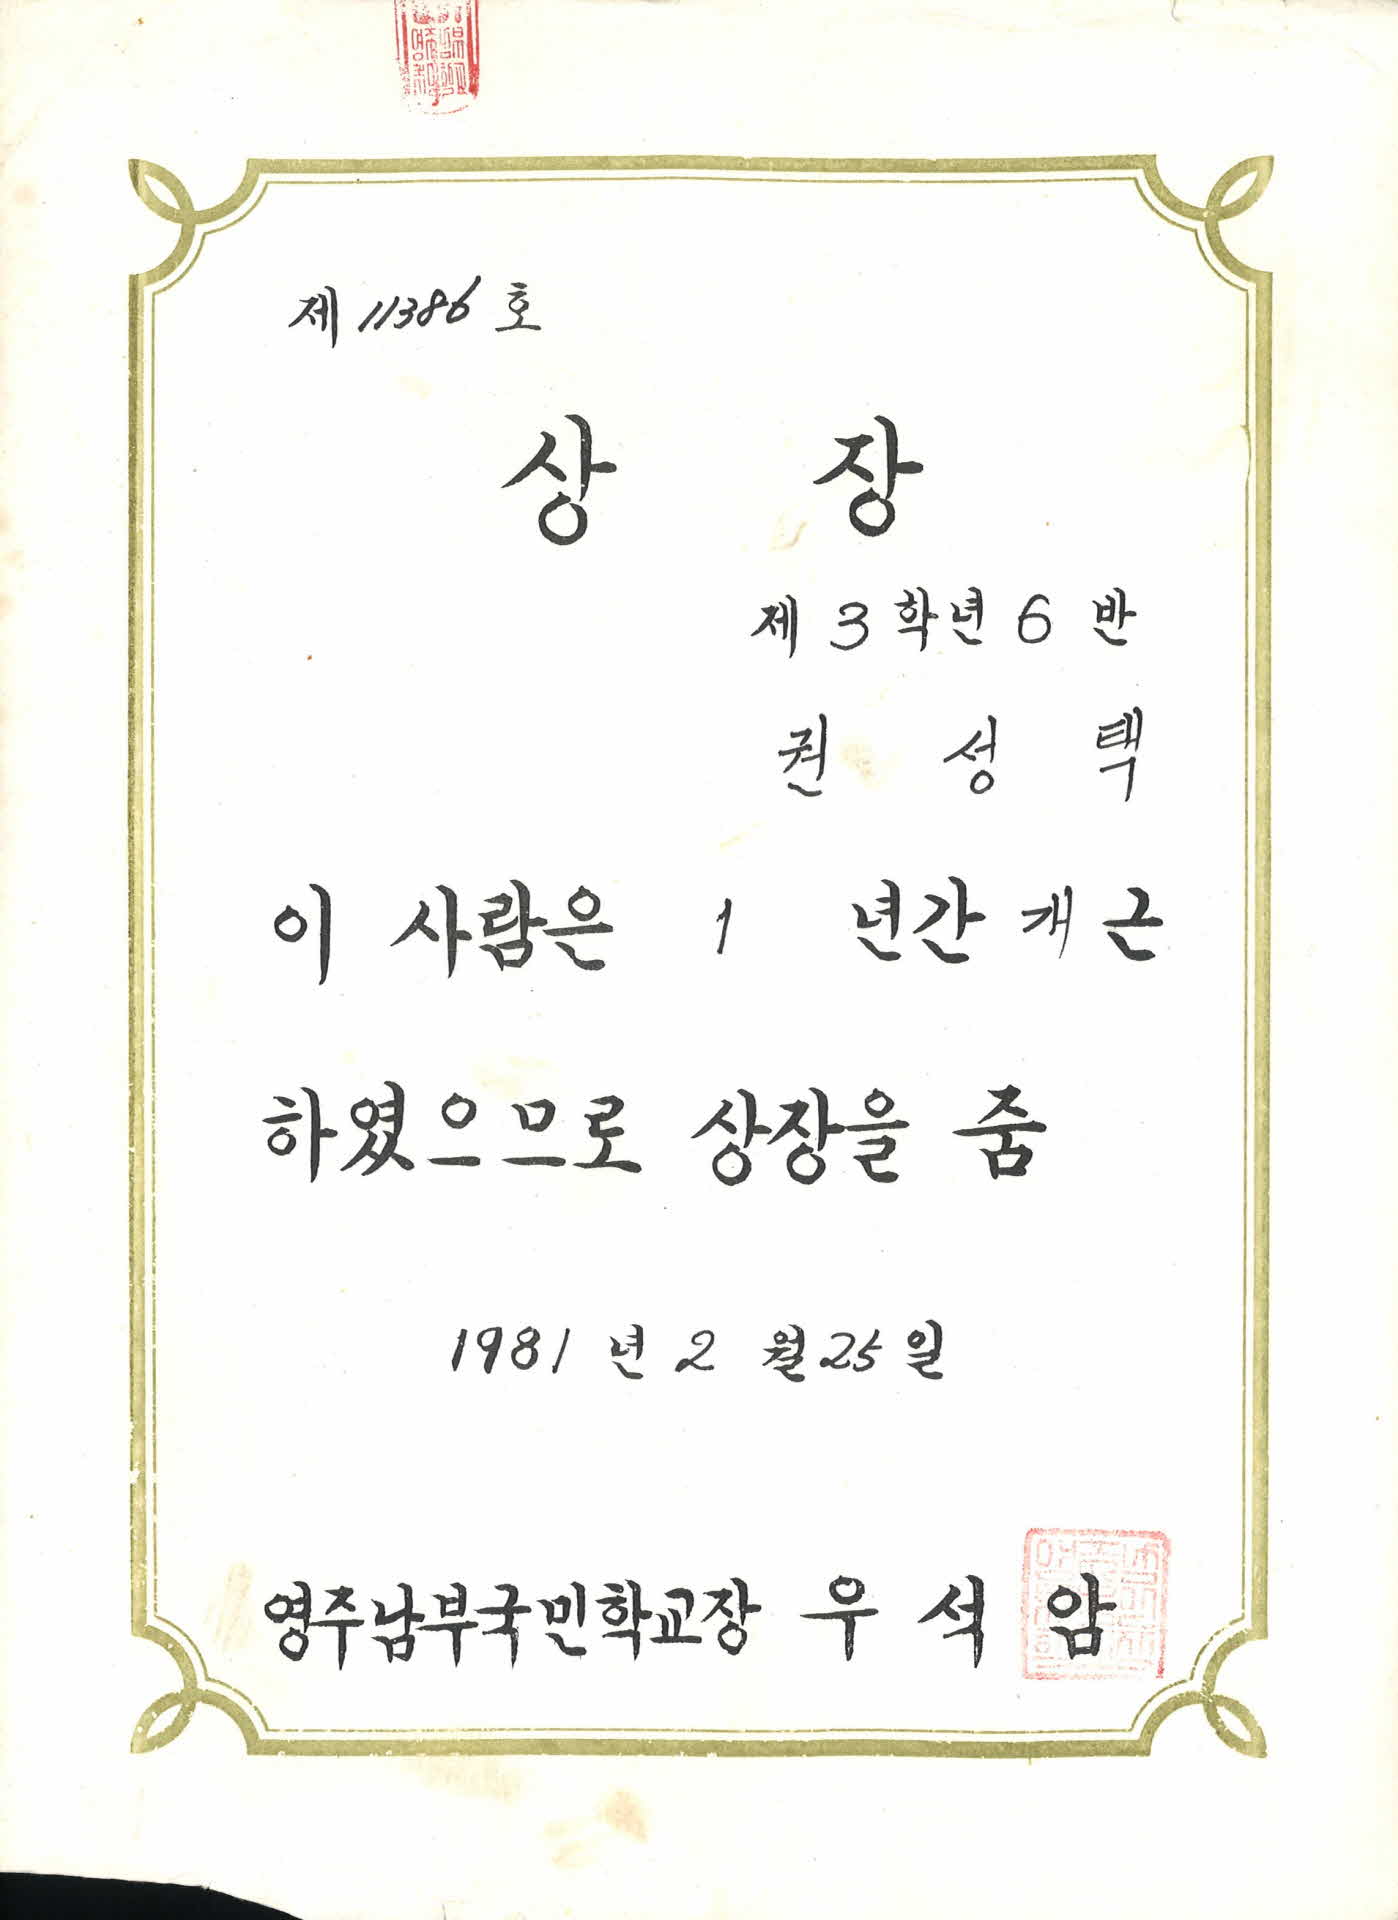 제 11386 호
상 장
제 3 학년 6 반
권 성 택
이 사람은 1 년간 개근
하였으므로 상장을 줌
1981 년 2 월 25 일
영주남부국민학교장 우 석 암